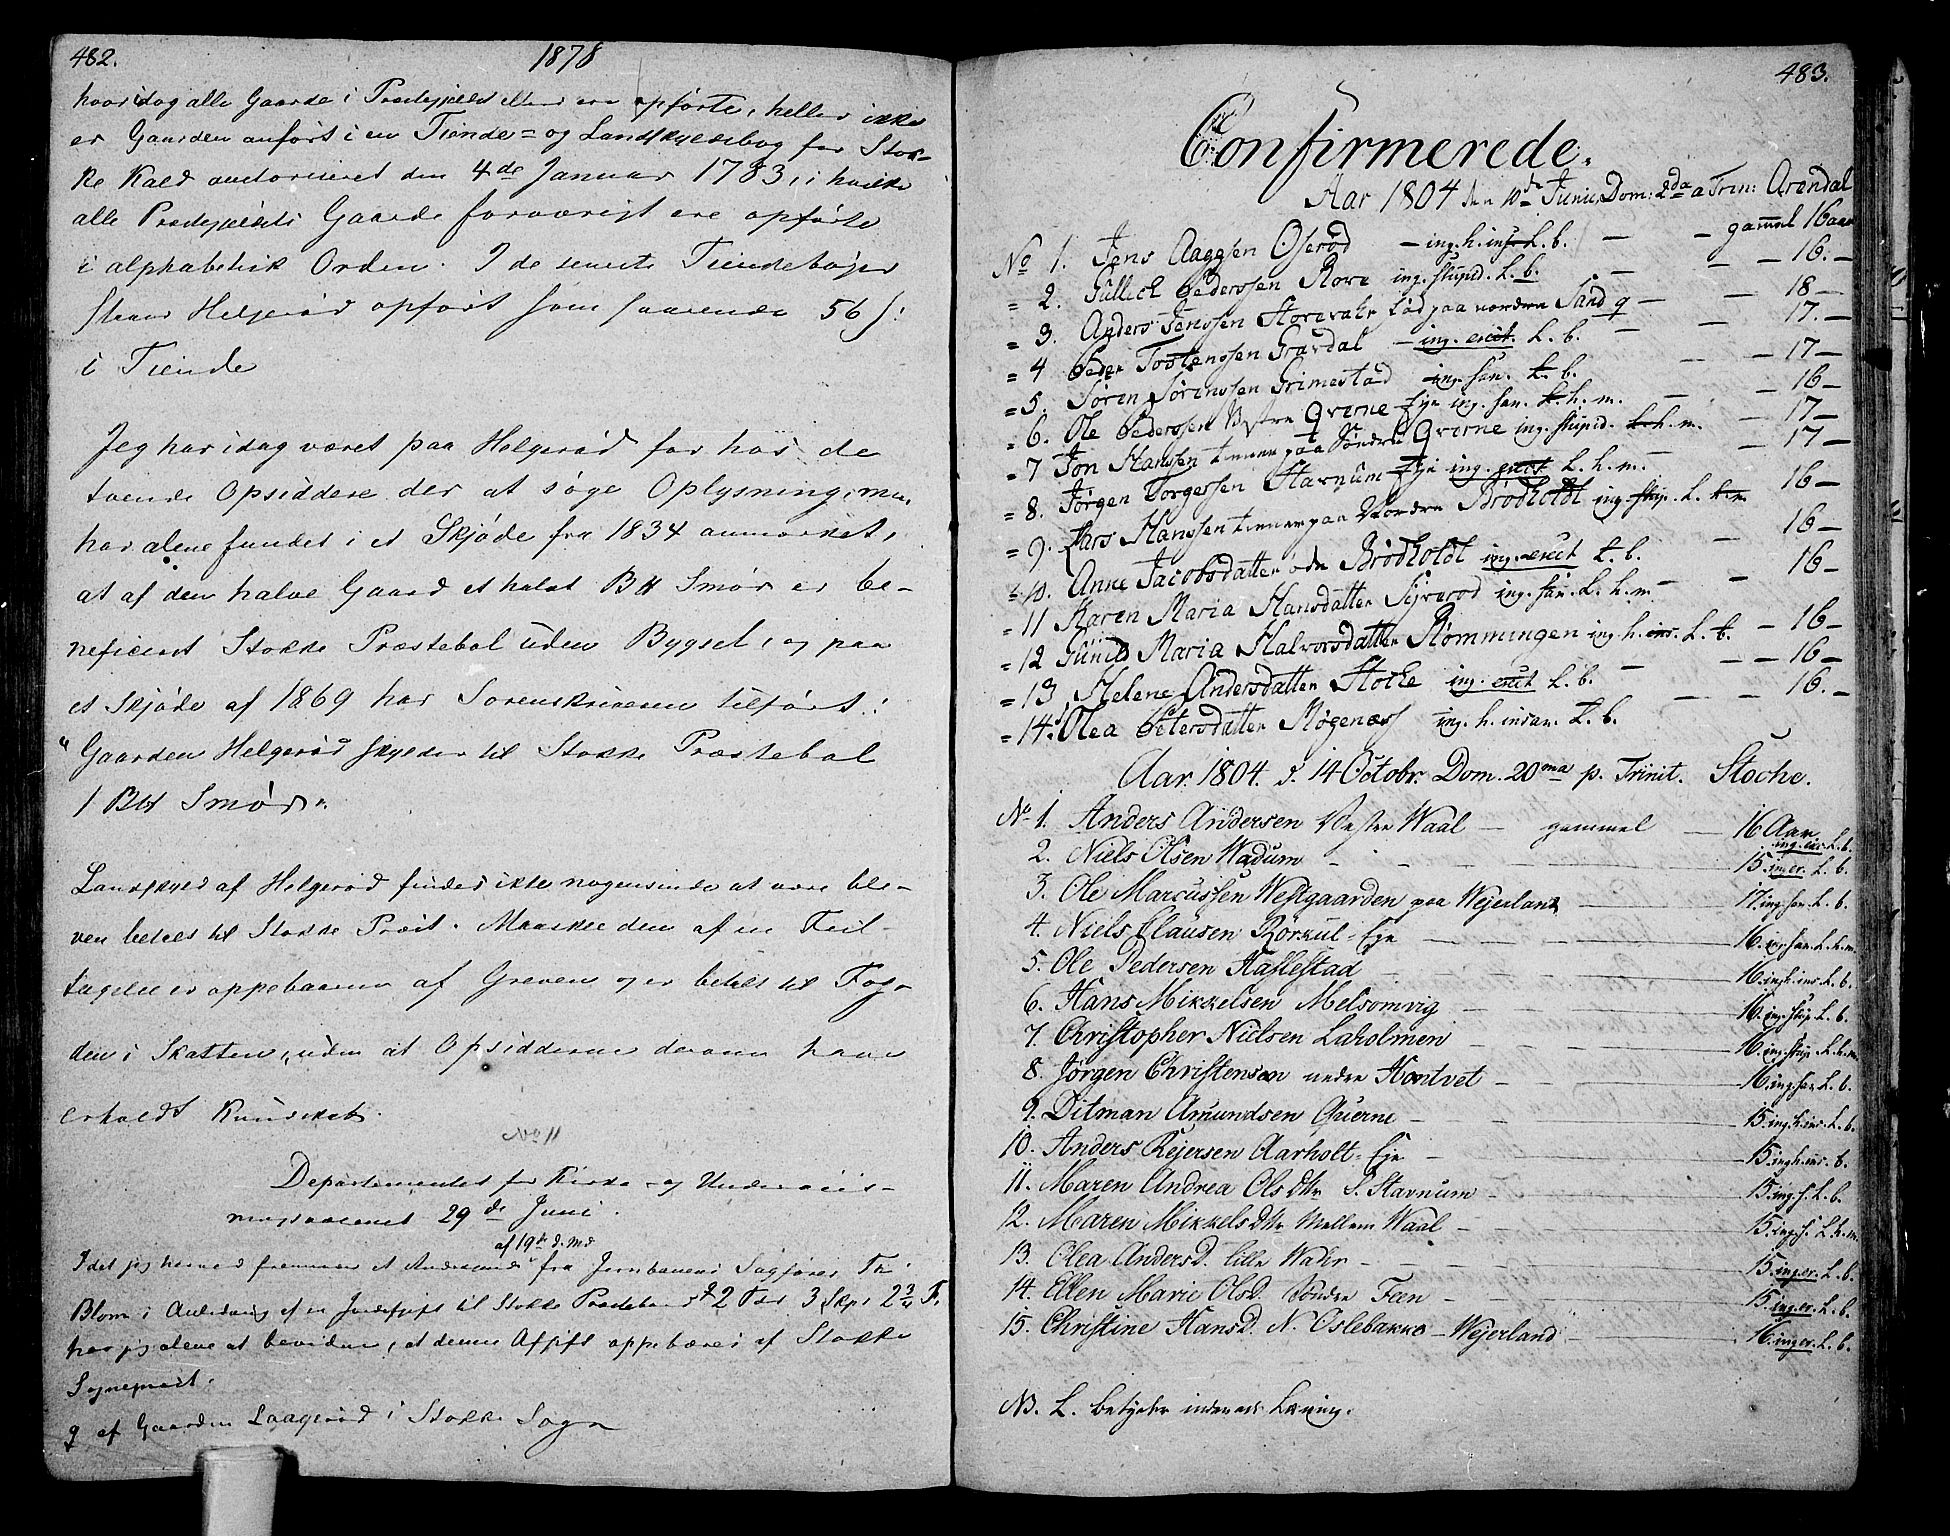 482.
1878
hvori dog alle Gaarde i Præstegjeldet ellers ere opførte, heller ikke
er Gaarden anført i en Tiende= og Landskyldbog for Stok-
ke Kald autoriseret den 4de Januar 1783, i hvilke
alle Præstegjeldets Gaarde forøvrigt ere opførte
i alphabetisk Orden. I de seneste Tiendebøger
staar Helgerød opført som svarende 56 ſ:
i Tiende
Jeg har idag været paa Helgerød for hos de
tvende Opsiddere der at søge Oplysning, men
har alene fundet i et Skjøde fra 1834 anmærket,
at af den halve Gaard et halvt B℔ Smør er be-
neficeret Stokke Præstebol uden Bygsel, og paa
et Skjøde af 1869 har Sorenskriveren tilført:
"Gaarden Helgerød skylder til Stokke Præstebol
1 B℔ Smør".
Landskyld af Helgerød findes ikke nogensinde at være ble-
ven betalt til Stokke Præst. Maaskee den af en Feil-
tagelse er oppebaaren af Greven og er betalt til Fog-
den i Skatten, uden at Opsidderne derom have
erholdt Kundskab.
Departementet for Kirke- og Undervis-
ningsvæsenet 29de Juni.
af 19de d. Md
Idet jeg herved fremsender et Andragende fra Jernbanens Sagfører
Blom i Anledning af en Jordafgift til Stokke Præstebord 2 Tdr 3 Skp 2 3/4 F.
har jeg alene at bevidne, at denne Afgift oppebæres af Stokke
Sognepræst.
af Gaarden Laagerød i Stokke Sogn
483.
Confirmerede.
Aar 1804 den 10de Junii, Dom: 2da a Trin: Arendal
No 1. Jens Aagesen Oserød – ing. h. ins. L. b. – – gammel 16 aar
= 2. Gullich Pedersen Rore ing. stupid. L. b. – – 16. –
= 3. Anders Jenssen Storevahr fød paa nordre Sand – – 18 –
= 4 Peder Tostenssen Gravdal – ing. erect. L. b. – – 17. –
= 5. Søren Sørenssen Grimestad ing. san. L. b. – – 17 –
= 6. Ole Pederssen Vestre Qverne Eje ing. san. L. h. m. – – 16 –
= 7 Jon Hanssen tienner paa Søndre Qverne ing. stupid. L. h. m. – 17 –
= 8. Jørgen Torgerssen Stavnum Eje ing. erect L. h. m. – – 17 –
= 9. Lars Hanssen tienner paa Nordre Brødholdt ing. stup. L. h. m. 16 –
= 10. Anne Jacobsdatter Brødholdt ing. erect L. b. – 16 –
= 11 Karen Maria Hansdatter Sjverød ing. san. L. h. m. – – 16 –
= 12 Gunild Maria Halvorsdatter Rømmingen ing. h. ins. L. b. – 16 –
= 13. Helene Andersdatter Stocke ing. erect L. b. – – – 16 –
= 14. Olea Petersdatter Møgenæss ing. h. insan. L. b. – – 16. –
Aar. 1804. d. 14 Octobr. Dom. 20ma p. Trinit. Stocke.
No 1. Anders Andersen Vestre Waal – gammel – 16 Aar ing. er. L. b.
2. Niels Olsen Wadum – – – – 15. ing. er. L. b.
3. Ole Marcussen Westgaarden paa Wejerland – 17. ing. san. L. b.
4. Niels Clausen Rørkul = Eje – – – 16. ing. san. L. h. m.
5. Ole Pedersen Hassestad – – 16. ing. h. ins. L. b.
6. Hans Mikkelsen Melsomvig – – 16. ing. stup. L. b.
7. Christopher Nielsen Laholmen – – 16. ing. stup. L. h. m.
8. Jørgen Christensen nedre Hontvet – – 16. ing. san. L. b.
9. Ditman Amundsen Querne – – 15. ing. h. ins. L. b.
10. Anders Rejersen Aarholt = Eje – 15. ing. h. ins. b.
11. Maren Andrea Olsdtr S. Stavnum – 15. ing. s. L. b.
12. Maren Mikkelsdtr Mellem Waal – 15. ing. s. L. h. m.
13. Olea Andersd. lille Wahr – – 15. ing. er. L. b.
14. Ellen Marie Olsd. Søndre Feen – – 15. ing. er. L. b.
15. Christine Hansd. N. Oslebakke – Wejerland – 16. ing. er. L. b.
NB. L. betyder indenads Læsning.